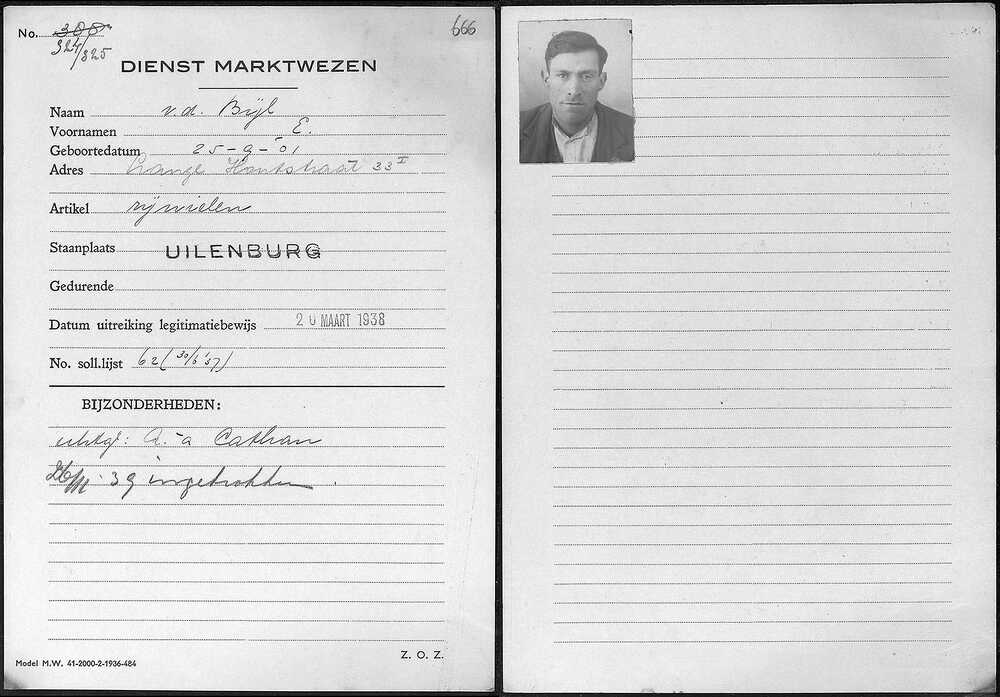 No. 300
324/325
666
DIENST MARKTWEZEN
Naam v.d. Bijl
Voornamen E.
Geboortedatum 25-9-'01
Adres Lange Houtstraat 33 I
Artikel rijwielen
Staanplaats UILENBURG
Gedurende
Datum uitreiking legitimatiebewijs 20 MAART 1938
No. soll.lijst 62 (30/6 '37)
BIJZONDERHEDEN:
echtgt: A. a Cathan
39 ingetrokken.
Z. O. Z.
Model M.W. 41-2000-2-1936-484